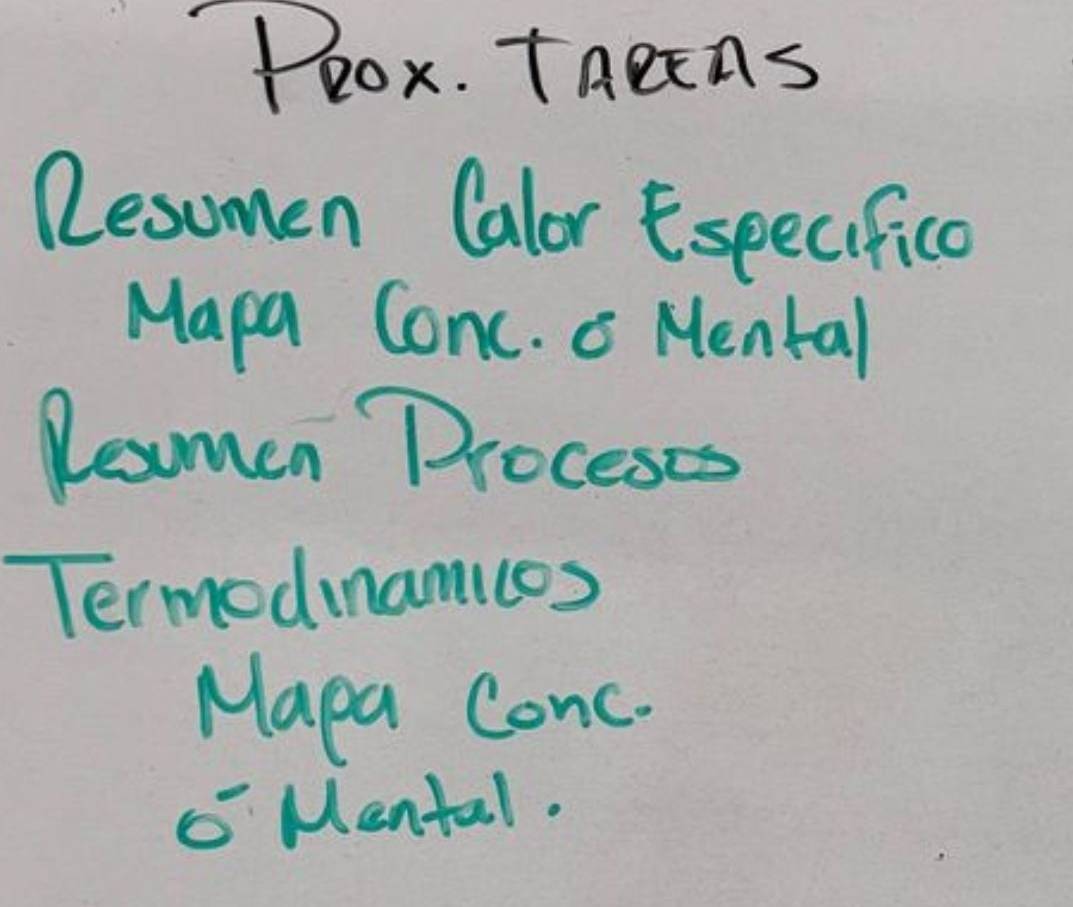 PROX. TAREAS
Resumen Calor Especifico
Mapa Conc. ó Mental
Resumen Procesos
Termodinamicos
Mapa Conc.
ó Mental.